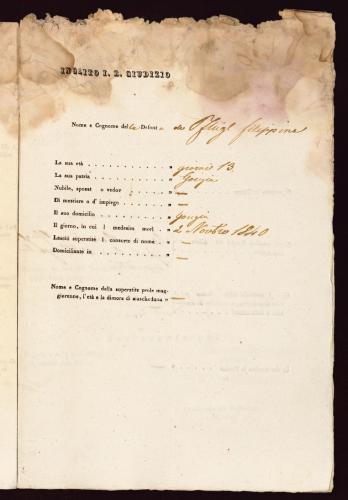 INCLITO I. R. GIUDIZIO
Nome e Cognome della Defunta de Pflügl Filippina
La sua età „ giorni 13.
La sua patria „ Gorizia
Nubile, sposat o vedov „ —
Di mestiere o d' impiego „ —
Il suo domicilio „ Gorizia
Il giorno, in cui l medesim morì „ 2 Novbre 1840
Lasciò superstite l consorte di nome „ —
Domiciliante in „ —
Nome e Cognome della superstite prole mag-
giorenne, l'età e la dimora di ciascheduna „ —